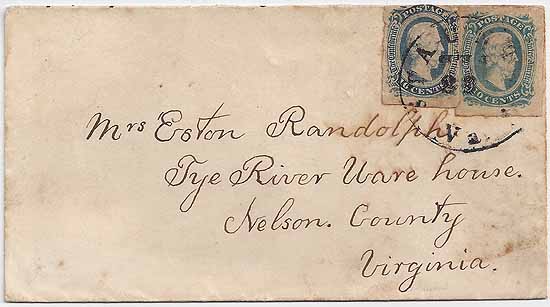 POSTAGE POSTAGE
TEN CENTS TEN CENTS
Va
Mrs Eston Randolph
Tye River Ware house.
Nelson. County
Virginia.